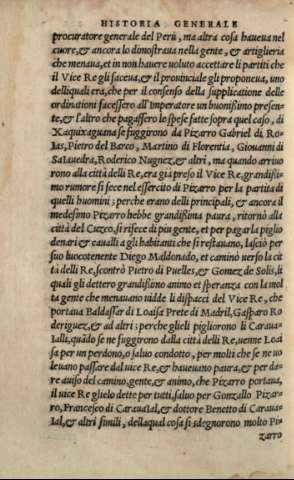 HISTORIA GENERALE
procuratore generale del Perù, ma altra cosa haueua nel
cuore, & ancora lo dimostraua nella gente, & artiglieria
che menaua, et in non hauere voluto accettare li partiti che
il Vice Re gli faceua, & il prouinciale gli proponeua, uno
delliquali era, che per il consenso della supplicatione delle
ordinationi facessero all'Imperatore un buonissimo presen-
te, & l'altro che pagassero le spese fatte sopra quel caso, di
Xaquixaguana se fuggirono da Pizarro Gabriel di Ro-
ias, Pietro del Barco, Martino di Florentia, Giouanni di
Saiauedra, Roderico Nugnez, & altri, ma quando arriuo
rono alla città delli Re, era già preso il Vice Re, grandissi-
mo rumore si fece nel essercito di Pizarro per la partita di
quelli huomini; perche erano delli principali, & ancora il
medesimo Pizarro hebbe grandissima paura, ritornò alla
città del Cuzco, si rifece di piu gente, et per pagarla piglio
denari & caualli a gli habitanti che si restauano, lasciò per
suo luocotenente Diego Maldonado, et caminò uerso la cit
tà delli Re, scontrò Pietro di Puelles, & Gomez de Solis, li
quali gli dettero grandissimo animo et speranza con la mol
ta gente che menauano uidde li dispacci del Vice Re, che
portaua Baldassar di Loaisa Prete di Madril, Gasparo Ro
deriguez, & ad altri; perche glieli pigliorono li Caraua-
Ialli, quãdo se ne fuggirono dalla città delli Re, uenne Loai
sa per un perdono, o saluo condotto, per molti che se ne uo
leuano passare dal uice Re, & haueuano paura, & per da-
re auiso del camino, gente, & animo, che Pizarro portaua,
il uice Re glielo dette per tutti, saluo per Gonzallo Pizar-
ro, Francesco di Carauaial, & dottore Benetto di Caraua-
Ial, & altri simili, dellaqual cosa si sdegnorono molto Pi-
zarro